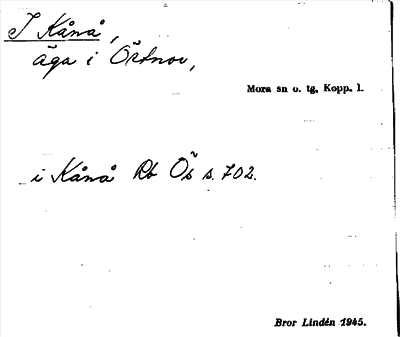 I Kånå,
äga i Östnor,
Mora sn o. tg. Kopp. l.
i Kånå Rb Ös s. 702.
Bror Lindén 1945.